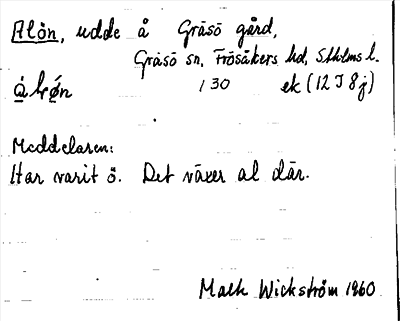 Alön, udde å Gräsö gård,
Gräsö sn, Frösåkers hd, Sthlms l.
130 ek (12I8j)
Meddelaren:
Har varit ö. Det växer al där.
Mats Wickström 1960